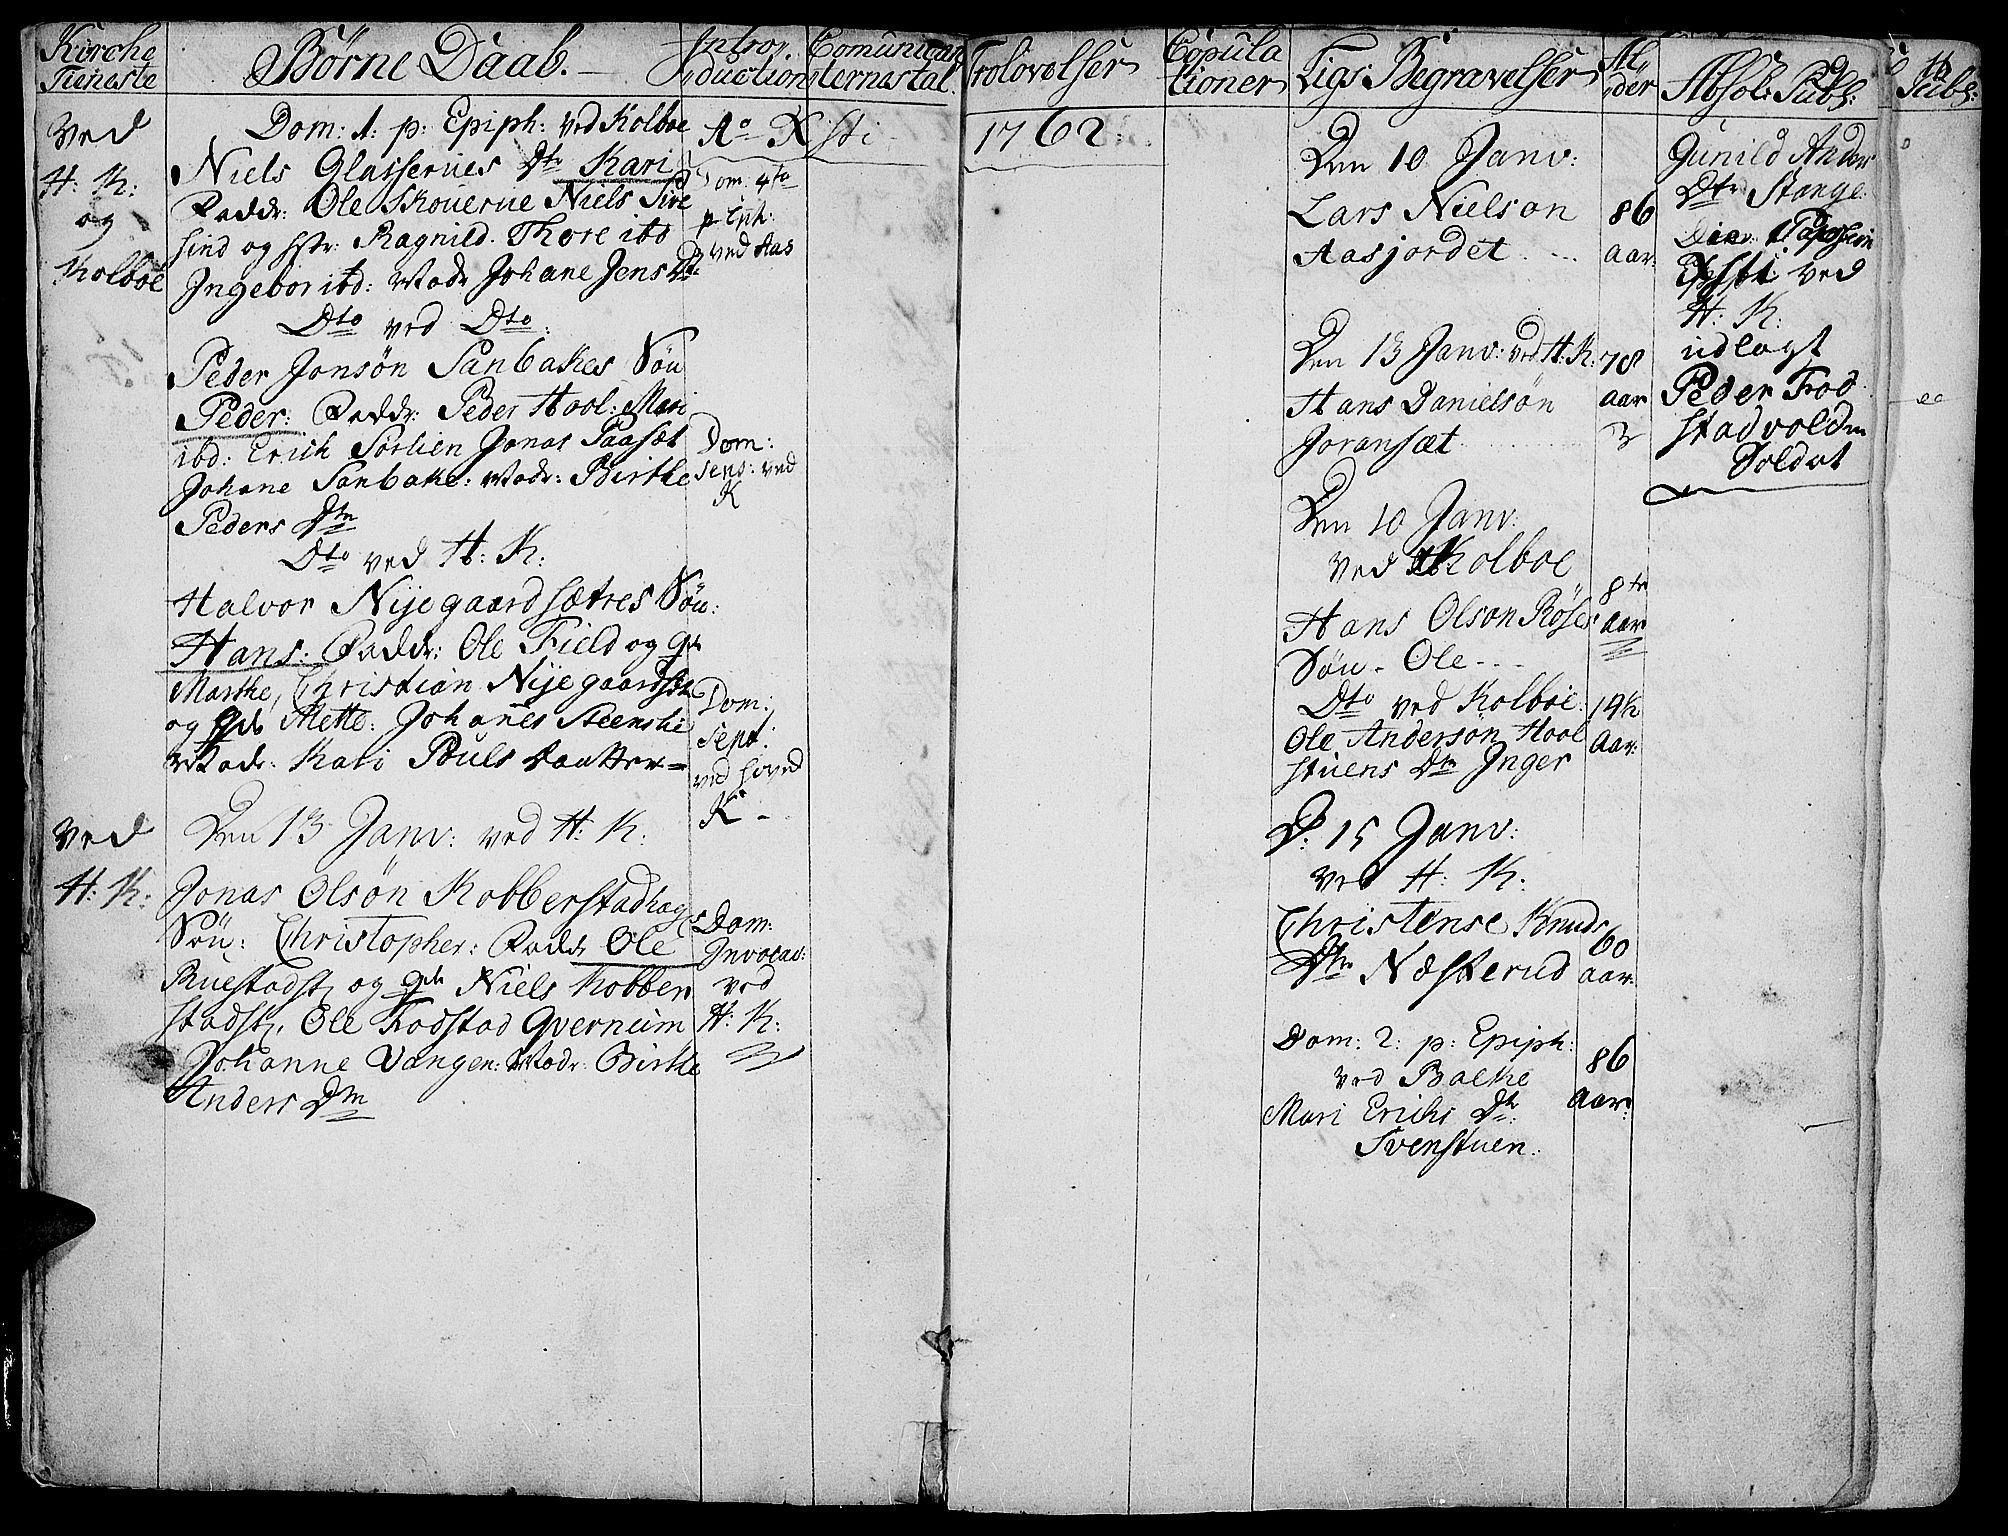 Kirche
Tieneste
Børne Daab.
Introduction
Comunicanternes tal.
Trolovelser
Copulationer
Ligs Begravelser
Alder
Absol: Publ:
Publ:
Ao Xsti
1762:
Ved
H: K:
og
Kolboe
Dom: 1: p: Epiph: ved Kolboe
Niels Glassernes Dtr Kari
Faddr: Ole Skouerne Niels Sive
sind og hstr: Ragnild. Thore ibd
Ingebor ibd: Modr Johane Jens Dtr
Dto ved Dto:
Peder Jonsøn Sanbakes Søn
Peder: Faddr: Peder Hool: Mari
ibd: Erich Sørlien Jonas Paasæt
Johane Sanbake: Modr: Birthe
Peders Dtr
Dto ved H: K:
Halvor Nijegaardsætres Søn:
Hans: Faddr: Ole Field og qde
Marthe, Christian Nijegaards
og qde Mette: Johanes Steenshie
Modr: Kari Pouls Daatter
Ved
H: K:
Den 13 Janv: ved H: K:
Jonas Olsøn Kobberstadhages
Søn: Christopher: Faddr Ole
Ruestadst og qde Niels Kobber
stadst, Ole Fodstad Qvernum
Johanne Vangen: Modr: Birthe
Anders Dtr
Dom: 4ta
p Eph:
ved Aas
Dom:
sens: ved
K
Dom:
Sept:
ved hoved
K
Dom:
Invocav:
ved
H: K:
Den 10 Janv:
Lars Nielson
Aasjordet
86
aar:
Den 13 Janv: ved H: K:
Hans Danielsøn
Joransæt
78
aar
Den 10 Janv:
ved Kolboe
Hans Olson Røses
Søn Ole
8
Aar
Dto ved Kolboe
Ole Andersøn Hool
stuens Dtr Inger
Aar:
D: 15 Janv:
ved H: K:
Christense Knuds
Dtr Næsterud
60
aar:
Dom: 2: p: Epiph:
ved Balke
Mari Erichs Dtr
Svenstuen:
86
Aar:
Gunild Anders
Dtr Stange
ved
H: K:
udlagt
Peder Fod
stadvolden
Soldat